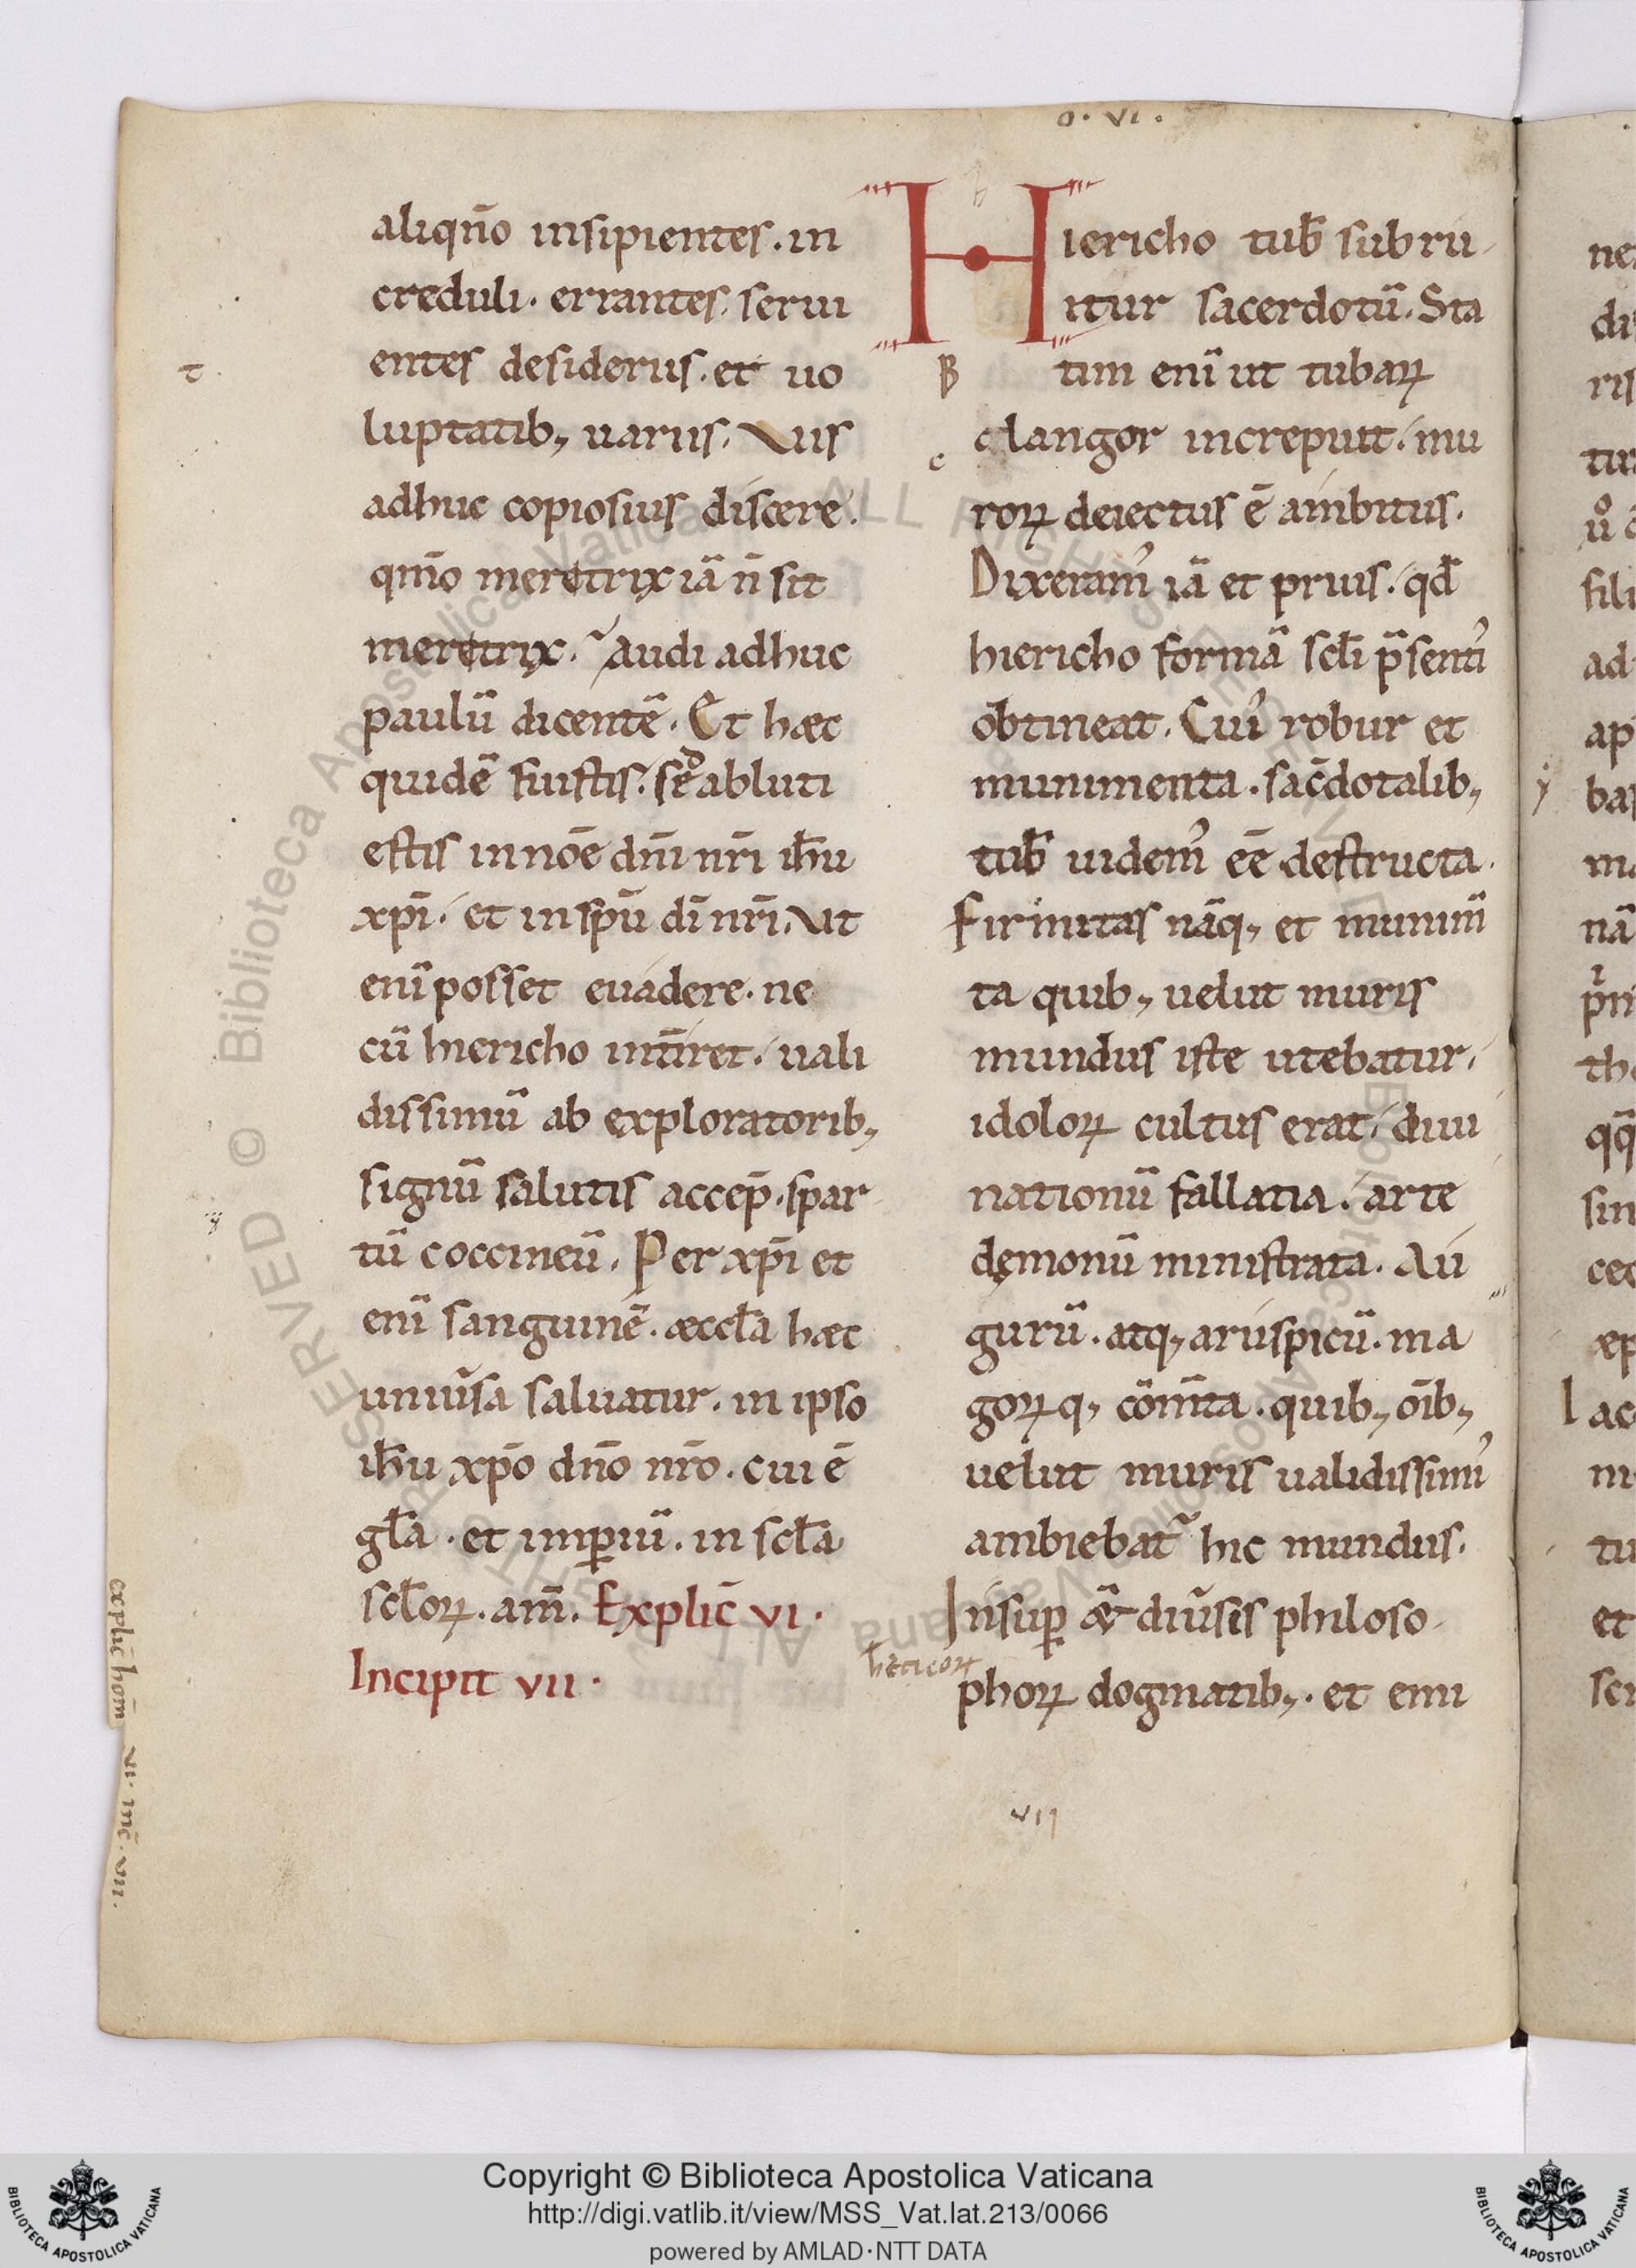 o. vi.
aliqn̄o insipientes. in
creduli. errantes. serui
entes desideriis. et uo
luptatib; uariis. Vis
adhuc copiosius discere.
qm̄o meretrix iā n̄ sit
meretrix. Audi adhuc
paulū dicentē. Et hæc
quidē fuistis. sed abluti
estis in nōe dn̄i nr̄i ih̄u
xp̄i. et in sp̄u dī nr̄i. Vt
enī posset euadere. ne
cū hiericho intīret. uali
dissimū ab exploratorib;
signū salutis accep̄. spar
tū coccineū. Per xp̄i et
enī sanguinē. æccl̄a hæc
uniūsa saluatur. in ipso
ih̄u xp̄o dn̄o nr̄o. cui ē
gl̄a. et imꝑiū. in scl̄a
scl̄oꝝ. am̄. Explic̄ vi.
Incipit vii.
Hiericho tub̄ subru
itur sacerdotū. Sta
tim enī ut tubaꝝ
clangor increpuit. mu
roꝝ deiectus ē ambitus.
Dixeram' iā et prius. qd̄
hiericho formā scl̄i p̄senti'
obtineat. Cui' robur et
munimenta. sac̄dotalib;
tub̄ uidem' eē destructa.
Firmitas nāq; et munim̄
ta quib; uelut muris
mundus iste utebatur.
idoloꝝ cultus erat. diui
nationū fallatia. arte
dęmonū ministrata. Au
gurū. atq; aruspicū. ma
goꝝq; cōm̄ta. quib; oīb;
uelut muris ualidissimi'
ambiebat' hic mundus.
Insuꝑ & diūsis philoso
phoꝝ dogmatib;. et emi
vij
explic̄ hom̄ vi. inc̄. vii.
Copyright © Biblioteca Apostolica Vaticana
http://digi.vatlib.it/view/MSS_Vat.lat.213/0066
powered by AMLAD·NTT DATA
BIBLIOTECA APOSTOLICA VATICANA
BIBLIOTECA APOSTOLICA VATICANA